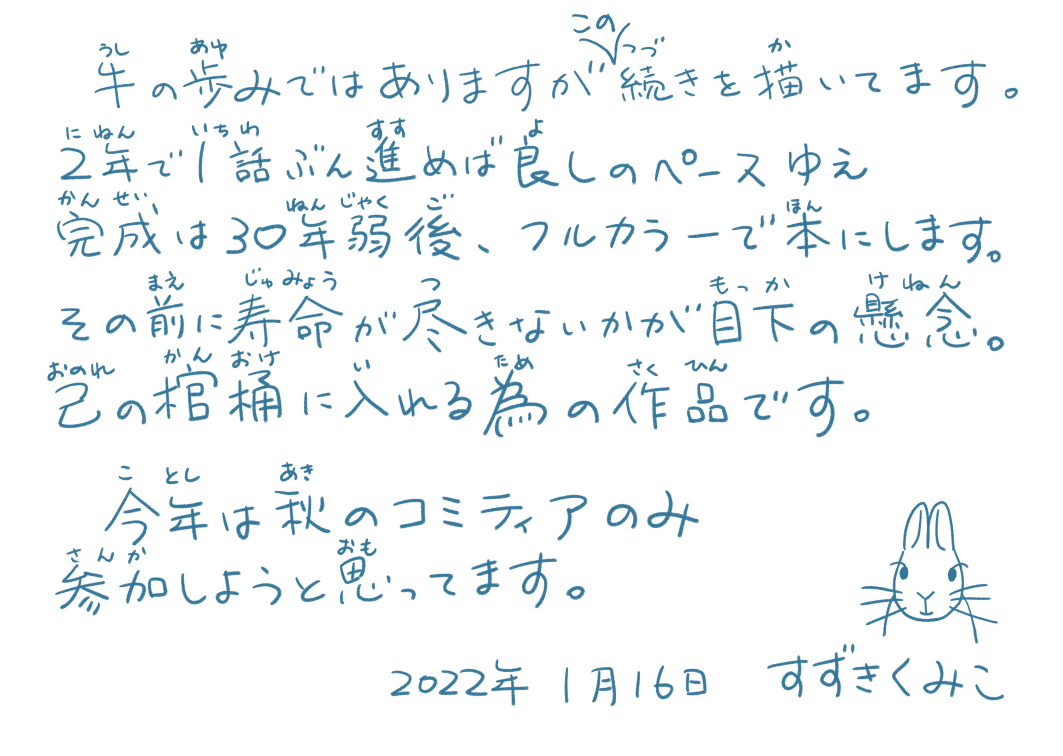 牛の歩みではありますがこの続きを描いてます。
2年で1話ぶん進めば良しのペースゆえ
完成は30年弱後、フルカラーで本にします。
その前に寿命が尽きないかが目下の懸念。
己の棺桶に入れる為の作品です。
今年は秋のコミティアのみ
参加しようと思ってます。
2022年 1月16日 すずきくみこ